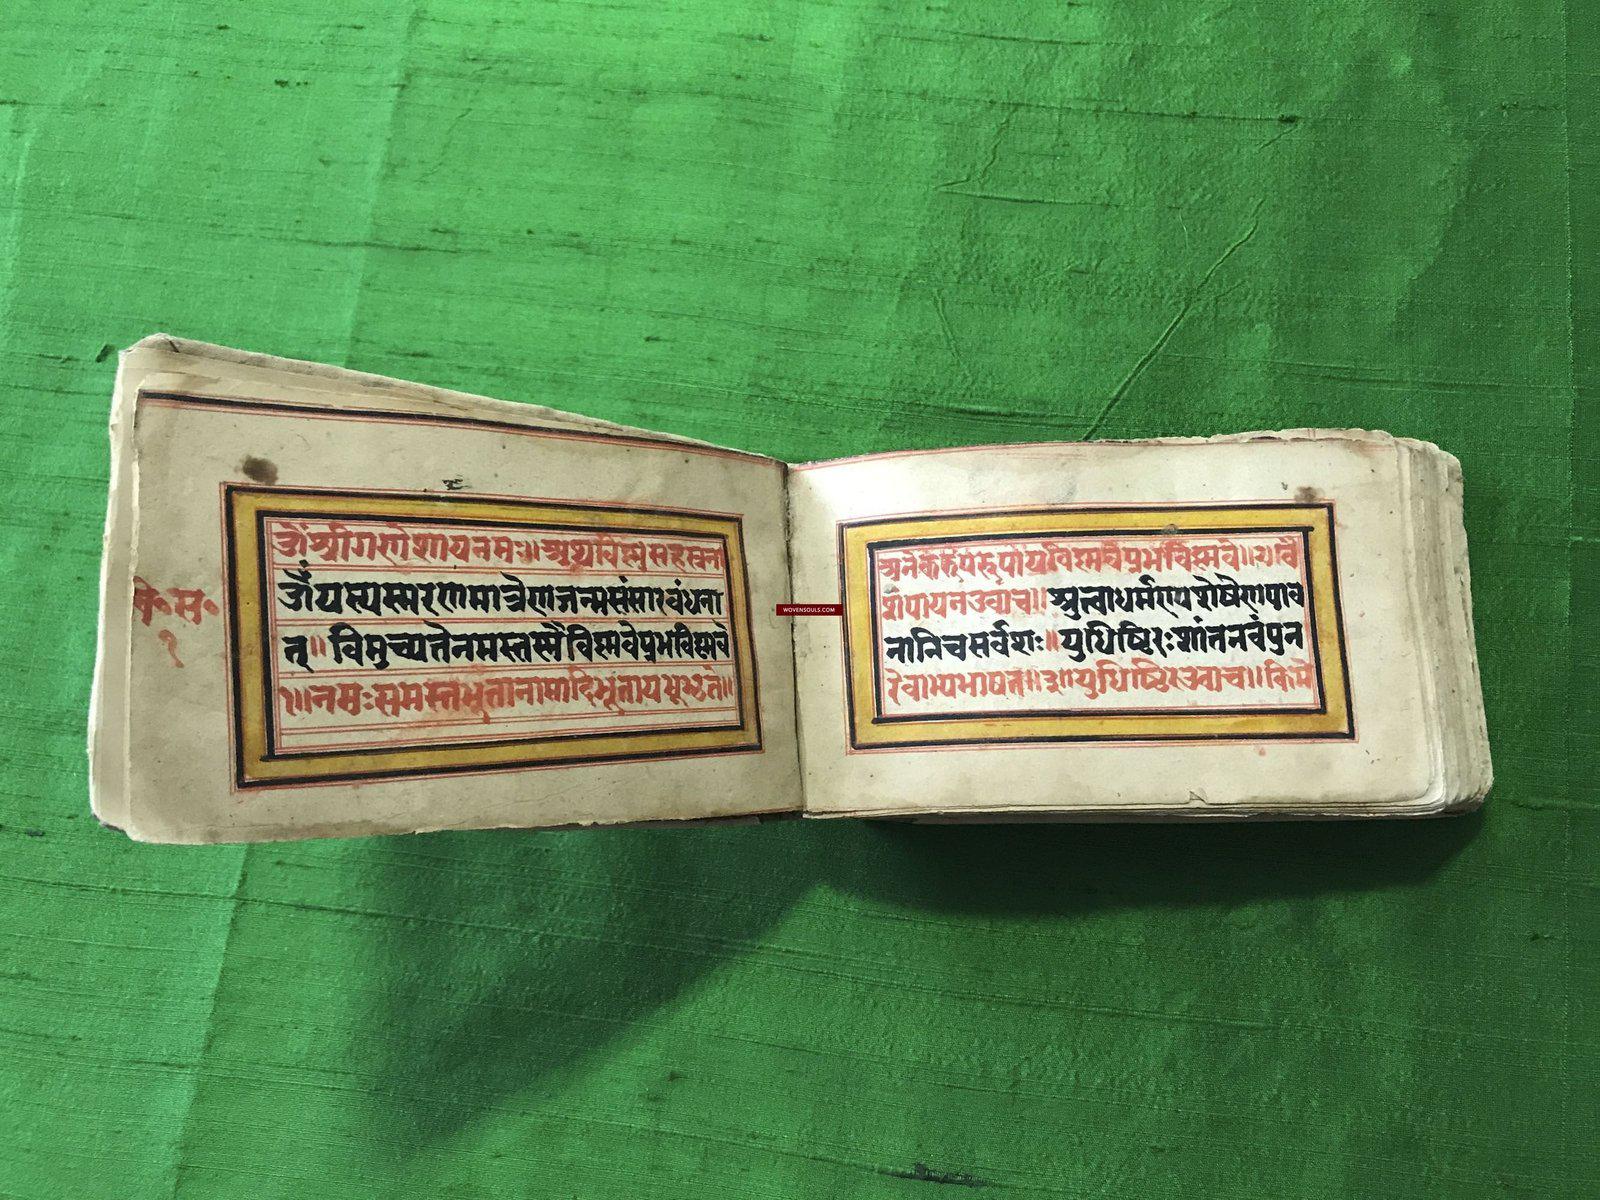 ॐश्रीगणेशायनमः॥अथविष्णुसहस्रना
ॐयस्यस्मरणमात्रेणजन्मसंसारबंधना
त्॥विमुच्यतेनमस्तस्मैविष्णवेप्रभविष्णवे
१॥नमःसमस्तभूतानामादिभूतायभूभृते॥
वि॰स॰
१
अनेकरूपरूपायविष्णवेप्रभविष्णवे॥२॥वै
शंपायनउवाच॥श्रुत्वाधर्माण्यशेषेणपाव
नानिचसर्वशः॥युधिष्ठिरःशांतनवंपुन
रेवाभ्यभाषत॥३॥युधिष्ठिरउवाच॥किमे
WOVENSOULS.COM